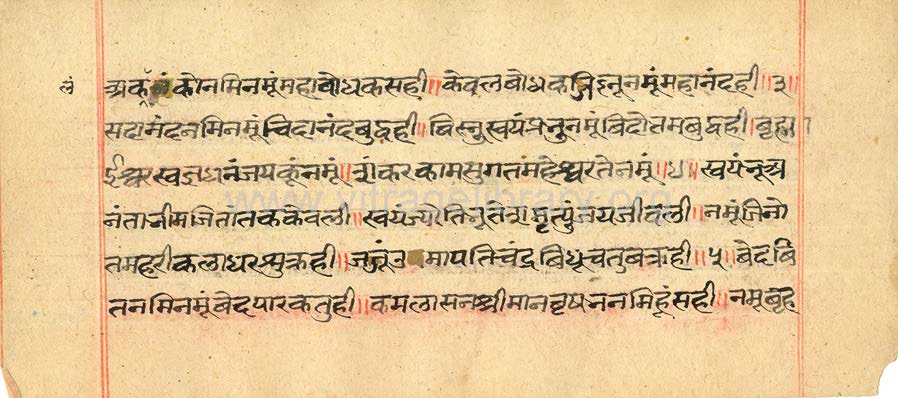 अकलंकोनमिनमूंमहाबोधकसही॥केवलबोधक नूनमूंमहानंदही॥३॥
सदानंदनमिनमूंचिदानंदबुद्धही॥विस्नुस्वयंप्रनूनमूंविदोतमबुद्धही॥बृह्मा
ईश्वर धनंजयकूंनमूं॥शंकरकामसुगतंमहेश्वरतेनमूं॥४॥स्वयंनूअ
नंता जितांतककेवली॥स्वयंज्योति मृत्युंजयजीवली॥नमूंजिनो
तमहरीकलाधरसुक्रही॥ मापतिचंद्रविधूचतुबक्रही॥५॥बेदबि
तनमिनमूंबेदपारकतुही॥कमलासनश्रीमानवृषननमिहूंसही॥नमूबृह
www.vitragelibrary.org